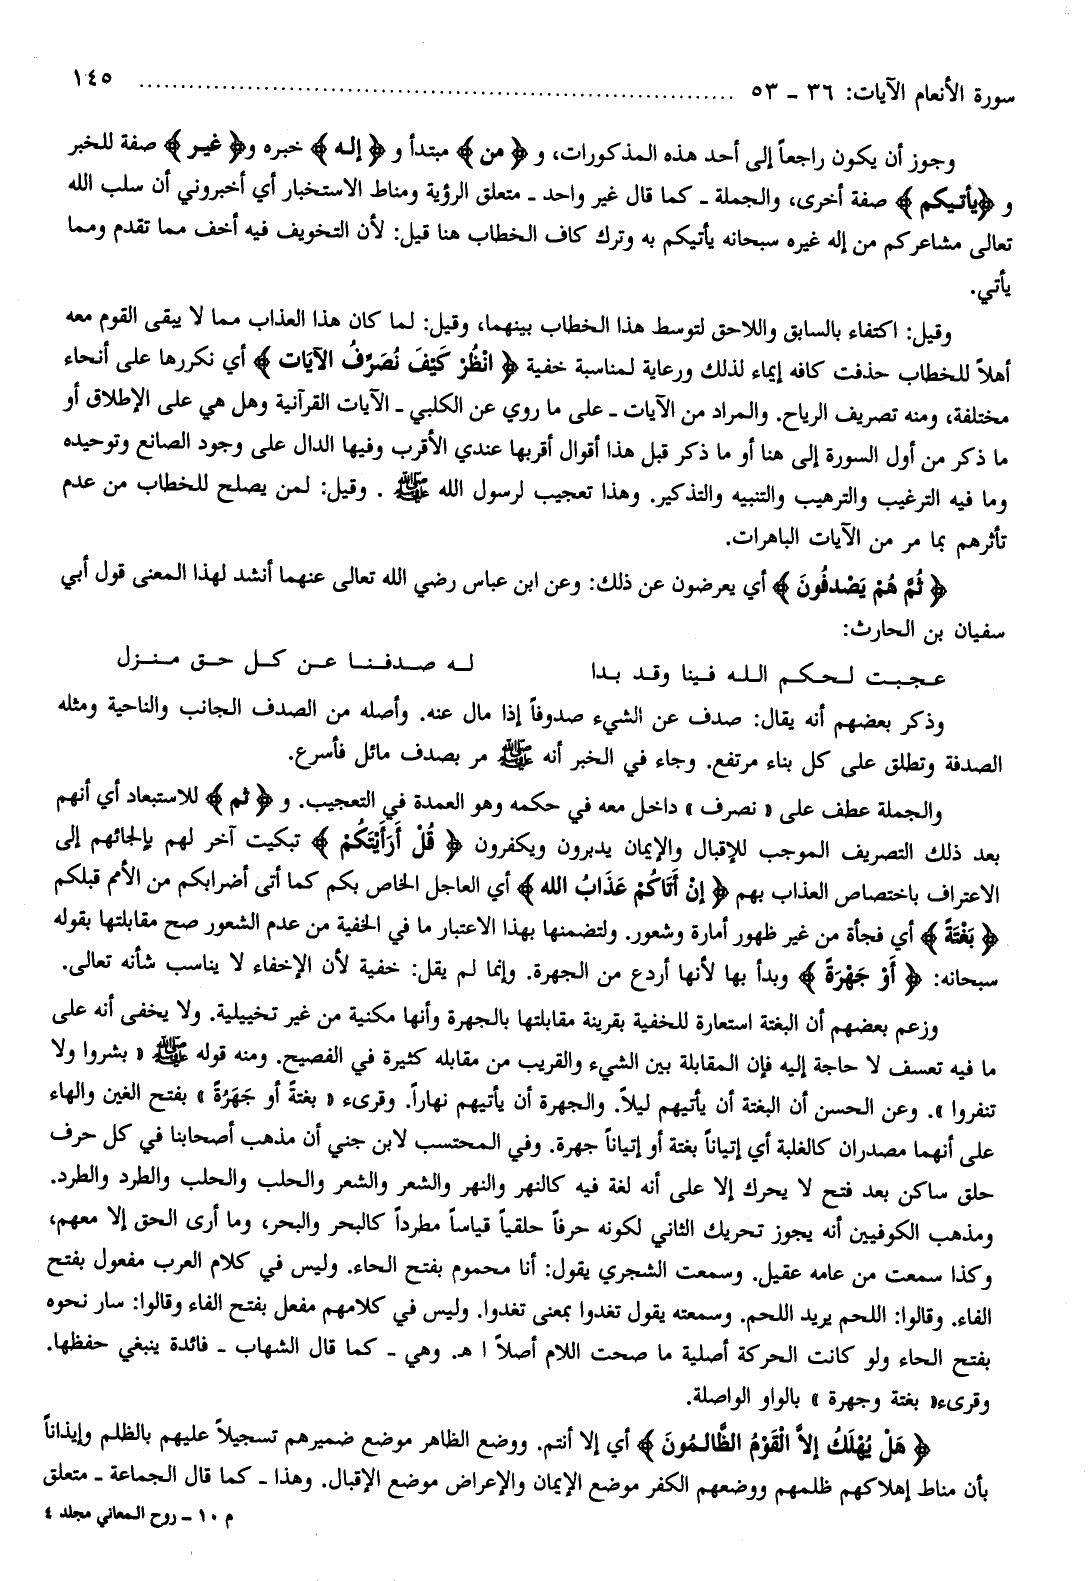 سورة الأنعام الآيات: ٣٦ ـ ٥٣ ........................................................................ ١٤٥
وجوز أن يكون راجعاً إلى أحد هذه المذكورات، و ﴿ من ﴾ مبتدأ و ﴿ إله ﴾ خبره و﴿ غير ﴾ صفة للخبر
و ﴿يأتيكم ﴾ صفة أخرى، والجملة ـ كما قال غير واحد ـ متعلق الرؤية ومناط الاستخبار أي أخبروني أن سلب الله
تعالى مشاعركم من إله غيره سبحانه يأتيكم به وترك كاف الخطاب هنا قيل: لأن التخويف فيه أخف مما تقدم ومما
يأتي.
وقيل: اكتفاء بالسابق واللاحق لتوسط هذا الخطاب بينهما، وقيل: لما كان هذا العذاب مما لا يبقى القوم معه
أهلاً للخطاب حذفت كافه إيماء لذلك ورعاية لمناسبة خفية ﴿ انْظُرْ كَيْفَ نُصَرِّفُ الآيَات ﴾ أي نكررها على أنحاء
مختلفة، ومنه تصريف الرياح. والمراد من الآيات ـ على ما روي عن الكلبي ـ الآيات القرآنية وهل هي على الإطلاق أو
ما ذكر من أول السورة إلى هنا أو ما ذكر قبل هذا أقوال أقربها عندي الأقرب وفيها الدال على وجود الصانع وتوحيده
وما فيه الترغيب والترهيب والتنبيه والتذكير. وهذا تعجيب لرسول الله ﷺ . وقيل: لمن يصلح للخطاب من عدم
تأثرهم بما مر من الآيات الباهرات.
﴿ ثُمَّ هُمْ يَصْدِفُونَ ﴾ أي يعرضون عن ذلك: وعن ابن عباس رضي الله تعالى عنهما أنشد لهذا المعنى قول أبي
سفيان بن الحارث:
عجبت لحكم الله فينا وقد بدا له صدفنا عن كل حق منزل
وذكر بعضهم أنه يقال: صدف عن الشيء صدوفاً إذا مال عنه. وأصله من الصدف الجانب والناحية ومثله
الصدفة وتطلق على كل بناء مرتفع. وجاء في الخبر أنه ﷺ مر بصدف مائل فأسرع.
والجملة عطف على « نصرف » داخل معه في حكمه وهو العمدة في التعجيب. و ﴿ ثم ﴾ للاستبعاد أي أنهم
بعد ذلك التصريف الموجب للإقبال والإيمان يدبرون ويكفرون ﴿ قُلْ أَرَأَيْتَكُمْ ﴾ تبكيت آخر لهم بإلجائهم إلى
الاعتراف باختصاص العذاب بهم ﴿ إنْ أَتَاكُمْ عَذَابُ الله ﴾ أي العاجل الخاص بكم كما أتى أضرابكم من الأمم قبلكم
﴿ بَغْتَةً ﴾ أي فجأة من غير ظهور أمارة وشعور. ولتضمنها بهذا الاعتبار ما في الخفية من عدم الشعور صح مقابلتها بقوله
سبحانه: ﴿ أَوْ جَهْرَةً ﴾ وبدأ بها لأنها أردع من الجهرة. وإنما لم يقل: خفية لأن الإخفاء لا يناسب شأنه تعالى.
وزعم بعضهم أن البغتة استعارة للخفية بقرينة مقابلتها بالجهرة وأنها مكنية من غير تخييلية. ولا يخفى أنه على
ما فيه تعسف لا حاجة إليه فإن المقابلة بين الشيء والقريب من مقابله كثيرة في الفصيح. ومنه قوله ﷺ « بشروا ولا
تنفروا ». وعن الحسن أن البغتة أن يأتيهم ليلاً. والجهرة أن يأتيهم نهاراً. وقرىء « بغتةً أو جَهَرُةً » بفتح الغين والهاء
على أنهما مصدران كالغلبة أي إتياناً بغتة أو إتياناً جهرة. وفي المحتسب لابن جني أن مذهب أصحابنا في كل حرف
حلق ساكن بعد فتح لا يحرك إلا على أنه لغة فيه كالنهر والنهر والشعر والشعر والحلب والحلب والطرد والطرد.
ومذهب الكوفيين أنه يجوز تحريك الثاني لكونه حرفاً حلقياً قياساً مطرداً كالبحر والبحر، وما أرى الحق إلا معهم،
وكذا سمعت من عامه عقيل. وسمعت الشجري يقول: أنا محموم بفتح الحاء. وليس في كلام العرب مفعول بفتح
الفاء. وقالوا: اللحم يريد اللحم. وسمعته يقول تغدوا بمعنى تغدوا. وليس في كلامهم مفعل بفتح الفاء وقالوا: سار نحوه
بفتح الحاء ولو كانت الحركة أصلية ما صحت اللام أصلاً ا هـ. وهي ـ كما قال الشهاب ـ فائدة ينبغي حفظها.
وقرىء« بغتة وجهرة » بالواو الواصلة.
﴿ هَلْ يُهْلَكُ إلاَّ الْقَوْمُ الظَّالمُونَ ﴾ أي إلا أنتم. ووضع الظاهر موضع ضميرهم تسجيلاً عليهم بالظلم وإيذاناً
بأن مناط إهلاكهم ظلمهم ووضعهم الكفر موضع الإيمان والإعراض موضع الإقبال. وهذا ـ كما قال الجماعة ـ متعلق
م ١٠ ـ روح المعاني مجلد ٤